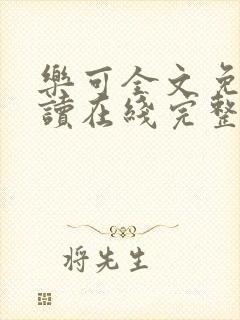 樂可全文免
讀在綫完整
将先生